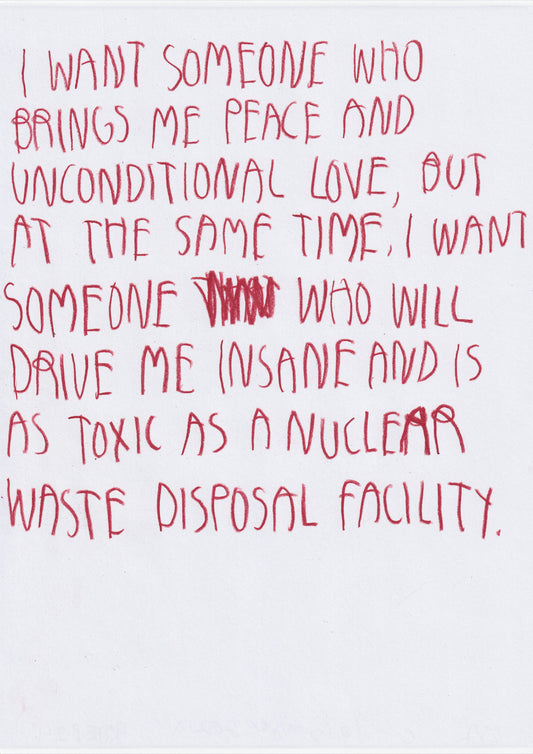 I WANT SOMEONE WHO
BRINGS ME PEACE AND
UNCONDITIONAL LOVE, BUT
AT THE SAME TIME, I WANT
SOMEONE WHO WILL
DRIVE ME INSANE AND IS
AS TOXIC AS A NUCLEAR
WASTE DISPOSAL FACILITY.